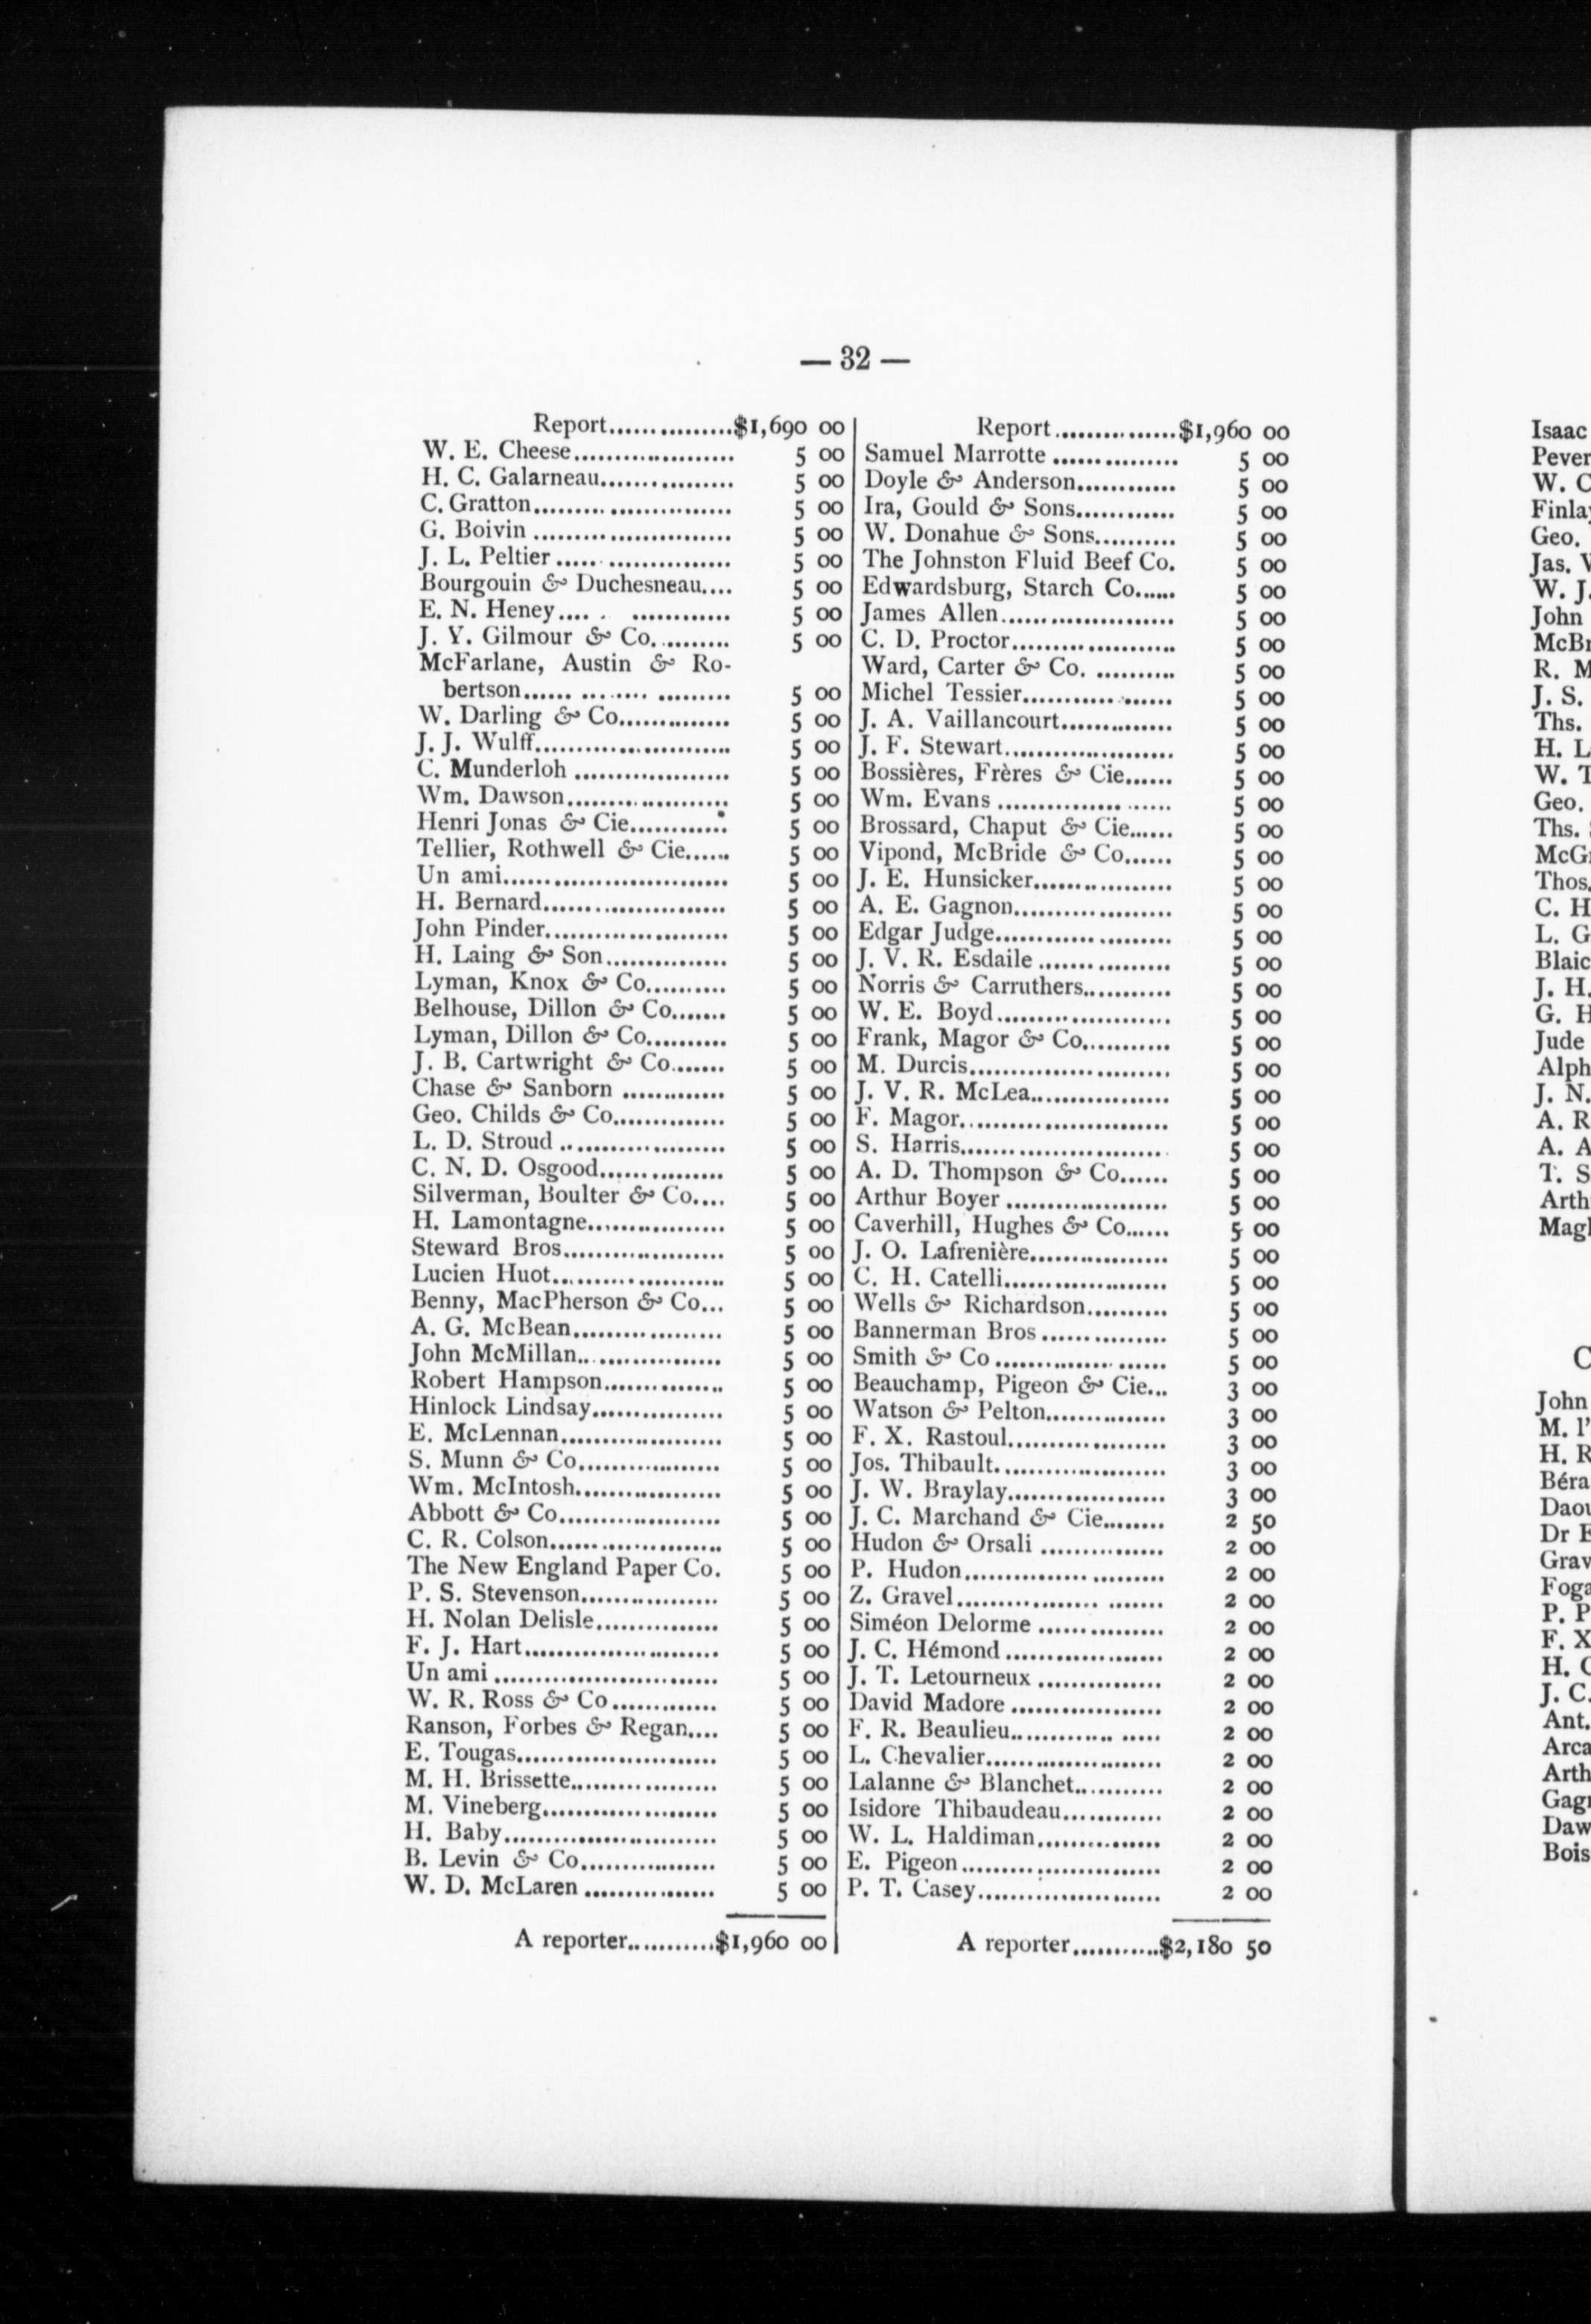 — 32 —
Report...............$1,690 00
W. E. Cheese.................... 5 00
H. C. Galarneau................ 5 00
C. Gratton........................ 5 00
G. Boivin ........................ 5 00
J. L. Peltier ..................... 5 00
Bourgouin & Duchesneau.... 5 00
E. N. Heney.... . ............ 5 00
J. Y. Gilmour & Co.......... 5 00
McFarlane, Austin & Ro-
bertson...... ......... ......... 5 00
W. Darling & Co.............. 5 00
J. J. Wulff........................ 5 00
C. Munderloh ................... 5 00
Wm. Dawson.................... 5 00
Henri Jonas & Cie............ 5 00
Tellier, Rothwell & Cie...... 5 00
Un ami............................ 5 00
H. Bernard....................... 5 00
John Pinder...................... 5 00
H. Laing & Son............... 5 00
Lyman, Knox & Co.......... 5 00
Belhouse, Dillon & Co....... 5 00
Lyman, Dillon & Co.......... 5 00
J. B. Cartwright & Co....... 5 00
Chase & Sanborn ............. 5 00
Geo. Childs & Co.............. 5 00
L. D. Stroud ..................... 5 00
C. N. D. Osgood............... 5 00
Silverman, Boulter & Co.... 5 00
H. Lamontagne................. 5 00
Steward Bros.................... 5 00
Lucien Huot..................... 5 00
Benny, MacPherson & Co... 5 00
A. G. McBean................... 5 00
John McMillan.................. 5 00
Robert Hampson............... 5 00
Hinlock Lindsay................ 5 00
E. McLennan.................... 5 00
S. Munn & Co.................. 5 00
Wm. McIntosh.................. 5 00
Abbott & Co.................... 5 00
C. R. Colson...................... 5 00
The New England Paper Co. 5 00
P. S. Stevenson................. 5 00
H. Nolan Delisle............... 5 00
F. J. Hart........................ 5 00
Un ami ............................ 5 00
W. R. Ross & Co............. 5 00
Ranson, Forbes & Regan.... 5 00
E. Tougas......................... 5 00
M. H. Brissette.................. 5 00
M. Vineberg...................... 5 00
H. Baby........................... 5 00
B. Levin & Co................. 5 00
W. D. McLaren ................ 5 00
A reporter...........$1,960 00
Report...............$1,960 00
Samuel Marrotte ............... 5 00
Doyle & Anderson............ 5 00
Ira, Gould & Sons............ 5 00
W. Donahue & Sons.......... 5 00
The Johnston Fluid Beef Co. 5 00
Edwardsburg, Starch Co...... 5 00
James Allen...................... 5 00
C. D. Proctor.................... 5 00
Ward, Carter & Co. .......... 5 00
Michel Tessier................... 5 00
J. A. Vaillancourt.............. 5 00
J. F. Stewart..................... 5 00
Bossières, Frères & Cie...... 5 00
Wm. Evans ...................... 5 00
Brossard, Chaput & Cie...... 5 00
Vipond, McBride & Co...... 5 00
J. E. Hunsicker................. 5 00
A. E. Gagnon.................... 5 00
Edgar Judge...................... 5 00
J. V. R. Esdaile ................ 5 00
Norris & Carruthers........... 5 00
W. E. Boyd...................... 5 00
Frank, Magor & Co........... 5 00
M. Durcis......................... 5 00
J. V. R. McLea................. 5 00
F. Magor.......................... 5 00
S. Harris.......................... 5 00
A. D. Thompson & Co...... 5 00
Arthur Boyer .................... 5 00
Caverhill, Hughes & Co...... 5 00
J. O. Lafrenière................. 5 00
C. H. Catelli.................... 5 00
Wells & Richardson.......... 5 00
Bannerman Bros ............... 5 00
Smith & Co ..................... 5 00
Beauchamp, Pigeon & Cie... 3 00
Watson & Pelton............... 3 00
F. X. Rastoul.................... 3 00
Jos. Thibault..................... 3 00
J. W. Braylay.................... 3 00
J. C. Marchand & Cie........ 2 50
Hudon & Orsali ............... 2 00
P. Hudon......................... 2 00
Z. Gravel......................... 2 00
Siméon Delorme ............... 2 00
J. C. Hémond ................... 2 00
J. T. Letourneux ............... 2 00
David Madore ................... 2 00
F. R. Beaulieu.................. 2 00
L. Chevalier...................... 2 00
Lalanne & Blanchet........... 2 00
Isidore Thibaudeau............ 2 00
W. L. Haldiman............... 2 00
E. Pigeon......................... 2 00
P. T. Casey....................... 2 00
A reporter...........$2,180 50
Isaac
W.
Geo.
Jas.
W. J.
John
R.
J. S.
Ths.
H.
W.
Geo.
Ths.
Thos.
C. H
L. G
J. H.
G. H
Jude
J. N.
A. R
A. A
T. S
John
H. R
Dr
P. P
F. X
H.
J. C.
Ant.